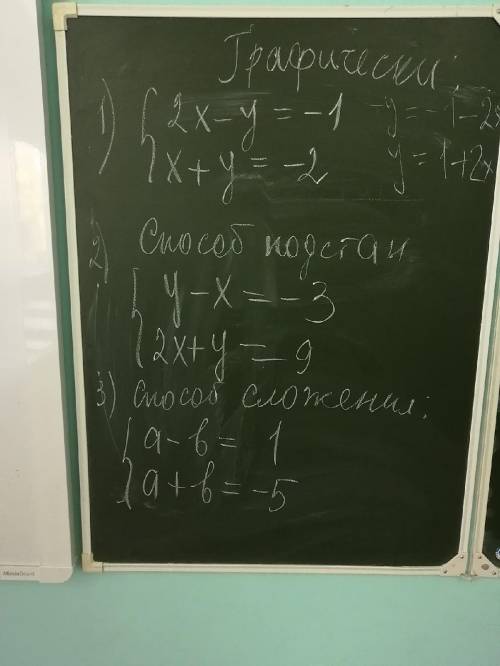 Графически:
1) { 2x-y = -1   -y = -1-2x
x+y = -2   y = 1+2x
2) Способ подстан
{ y-x = -3
2x+y = 9
3) способ сложения:
{ a-b = 1
a+b = -5